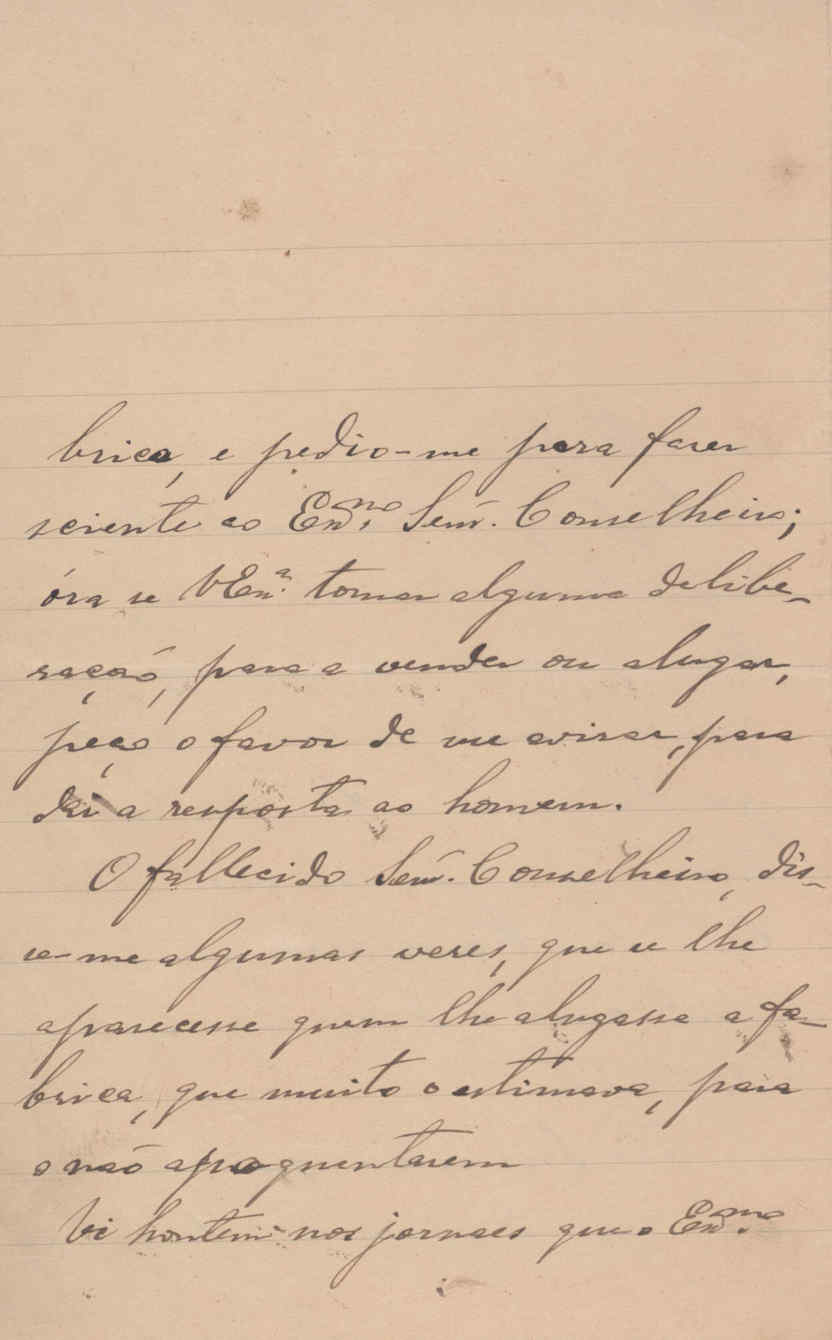 brica, e pedio-me para fazer
sciente ao Exmo. Senr. Conselheiro;
óra se VExa. tomar alguma delibe-
ração, para a vender ou alugar,
peço o favor de me avizar, para
dár a resposta ao homem.
O fallecido Senr. Conselheiro, dis-
se-me algumas vezes, que se lhe
aparecesse quem lhe alugasse a fa-
brica, que muito o estimava, para
o não apoquentarem
Vi hontem nos jornaes que o Exmo.